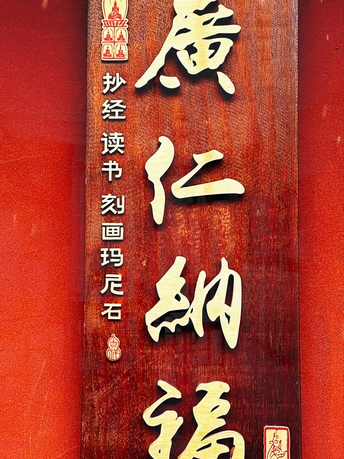 廣仁納福
抄经 读书 刻画玛尼石